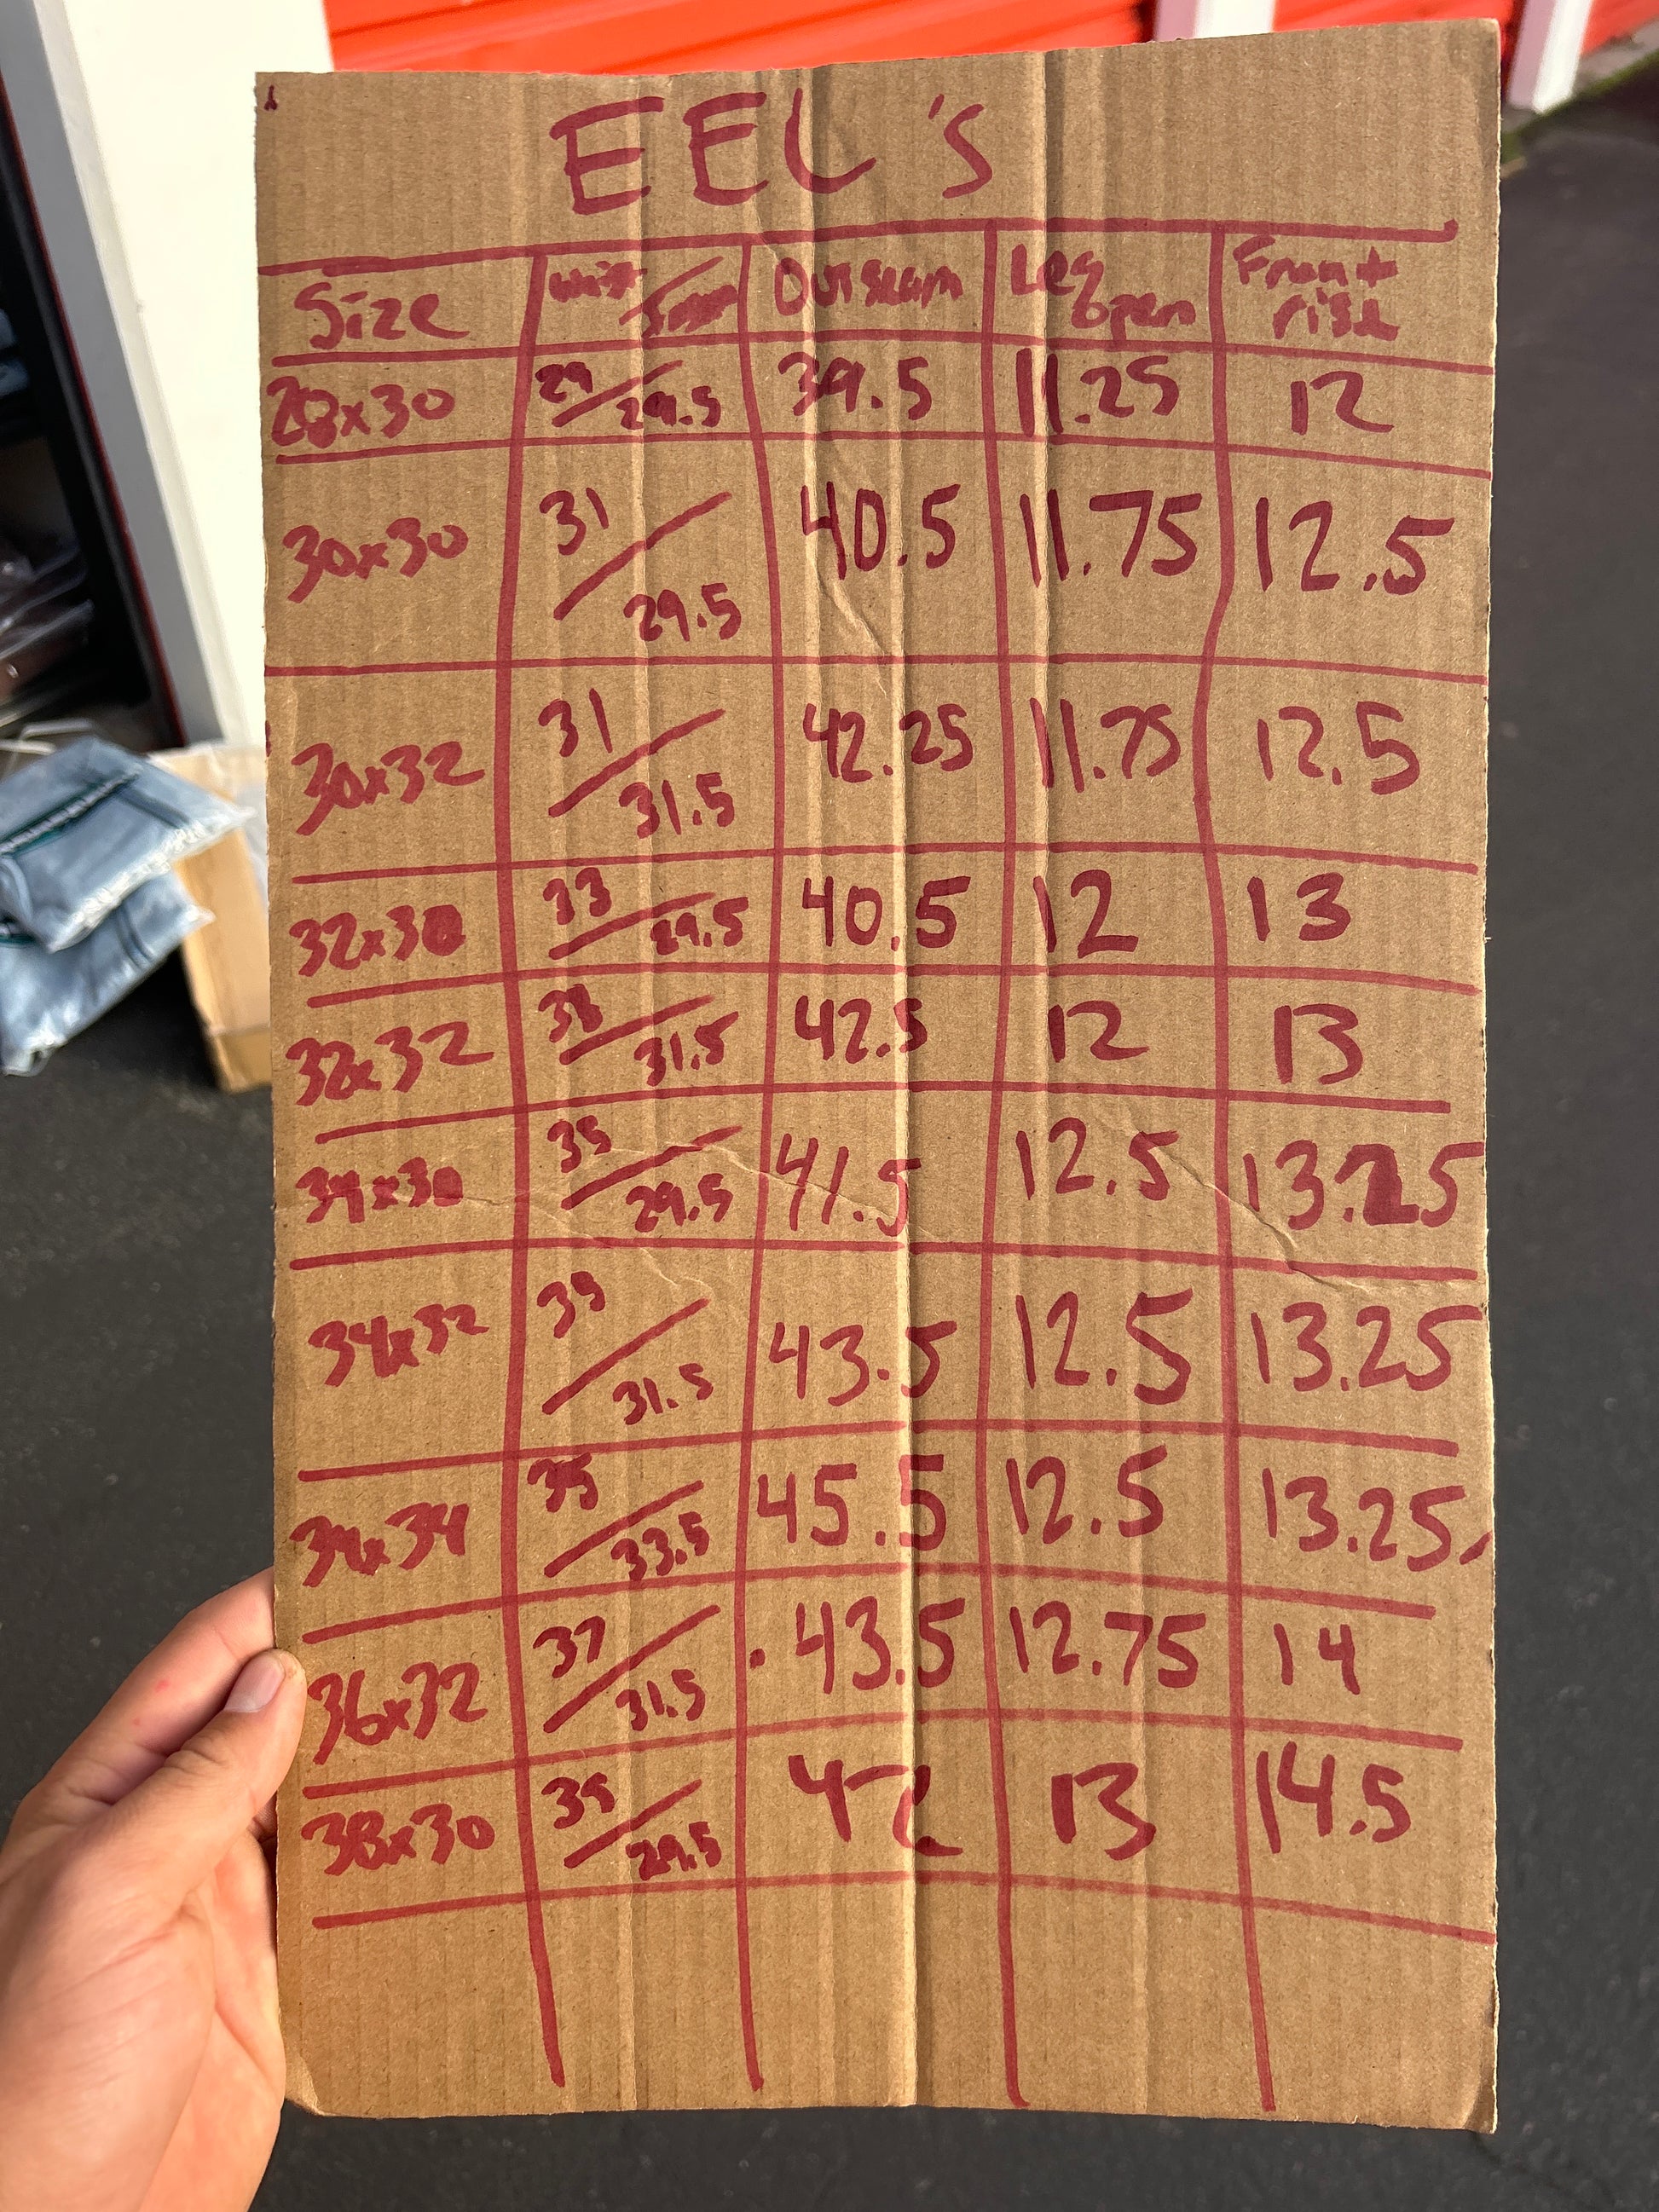 EEL's
Size Waist/Inseam Outseam Leg Open Front rise
28x30 29/29.5 39.5 11.25 12
30x30 31/29.5 40.5 11.75 12.5
30x32 31/31.5 42.25 11.75 12.5
32x30 33/29.5 40.5 12 13
32x32 33/31.5 42.5 12 13
34x30 35/29.5 41.5 12.5 13.25
34x32 35/31.5 43.5 12.5 13.25
34x34 35/33.5 45.5 12.5 13.25
36x32 37/31.5 43.5 12.75 14
38x30 39/29.5 42 13 14.5